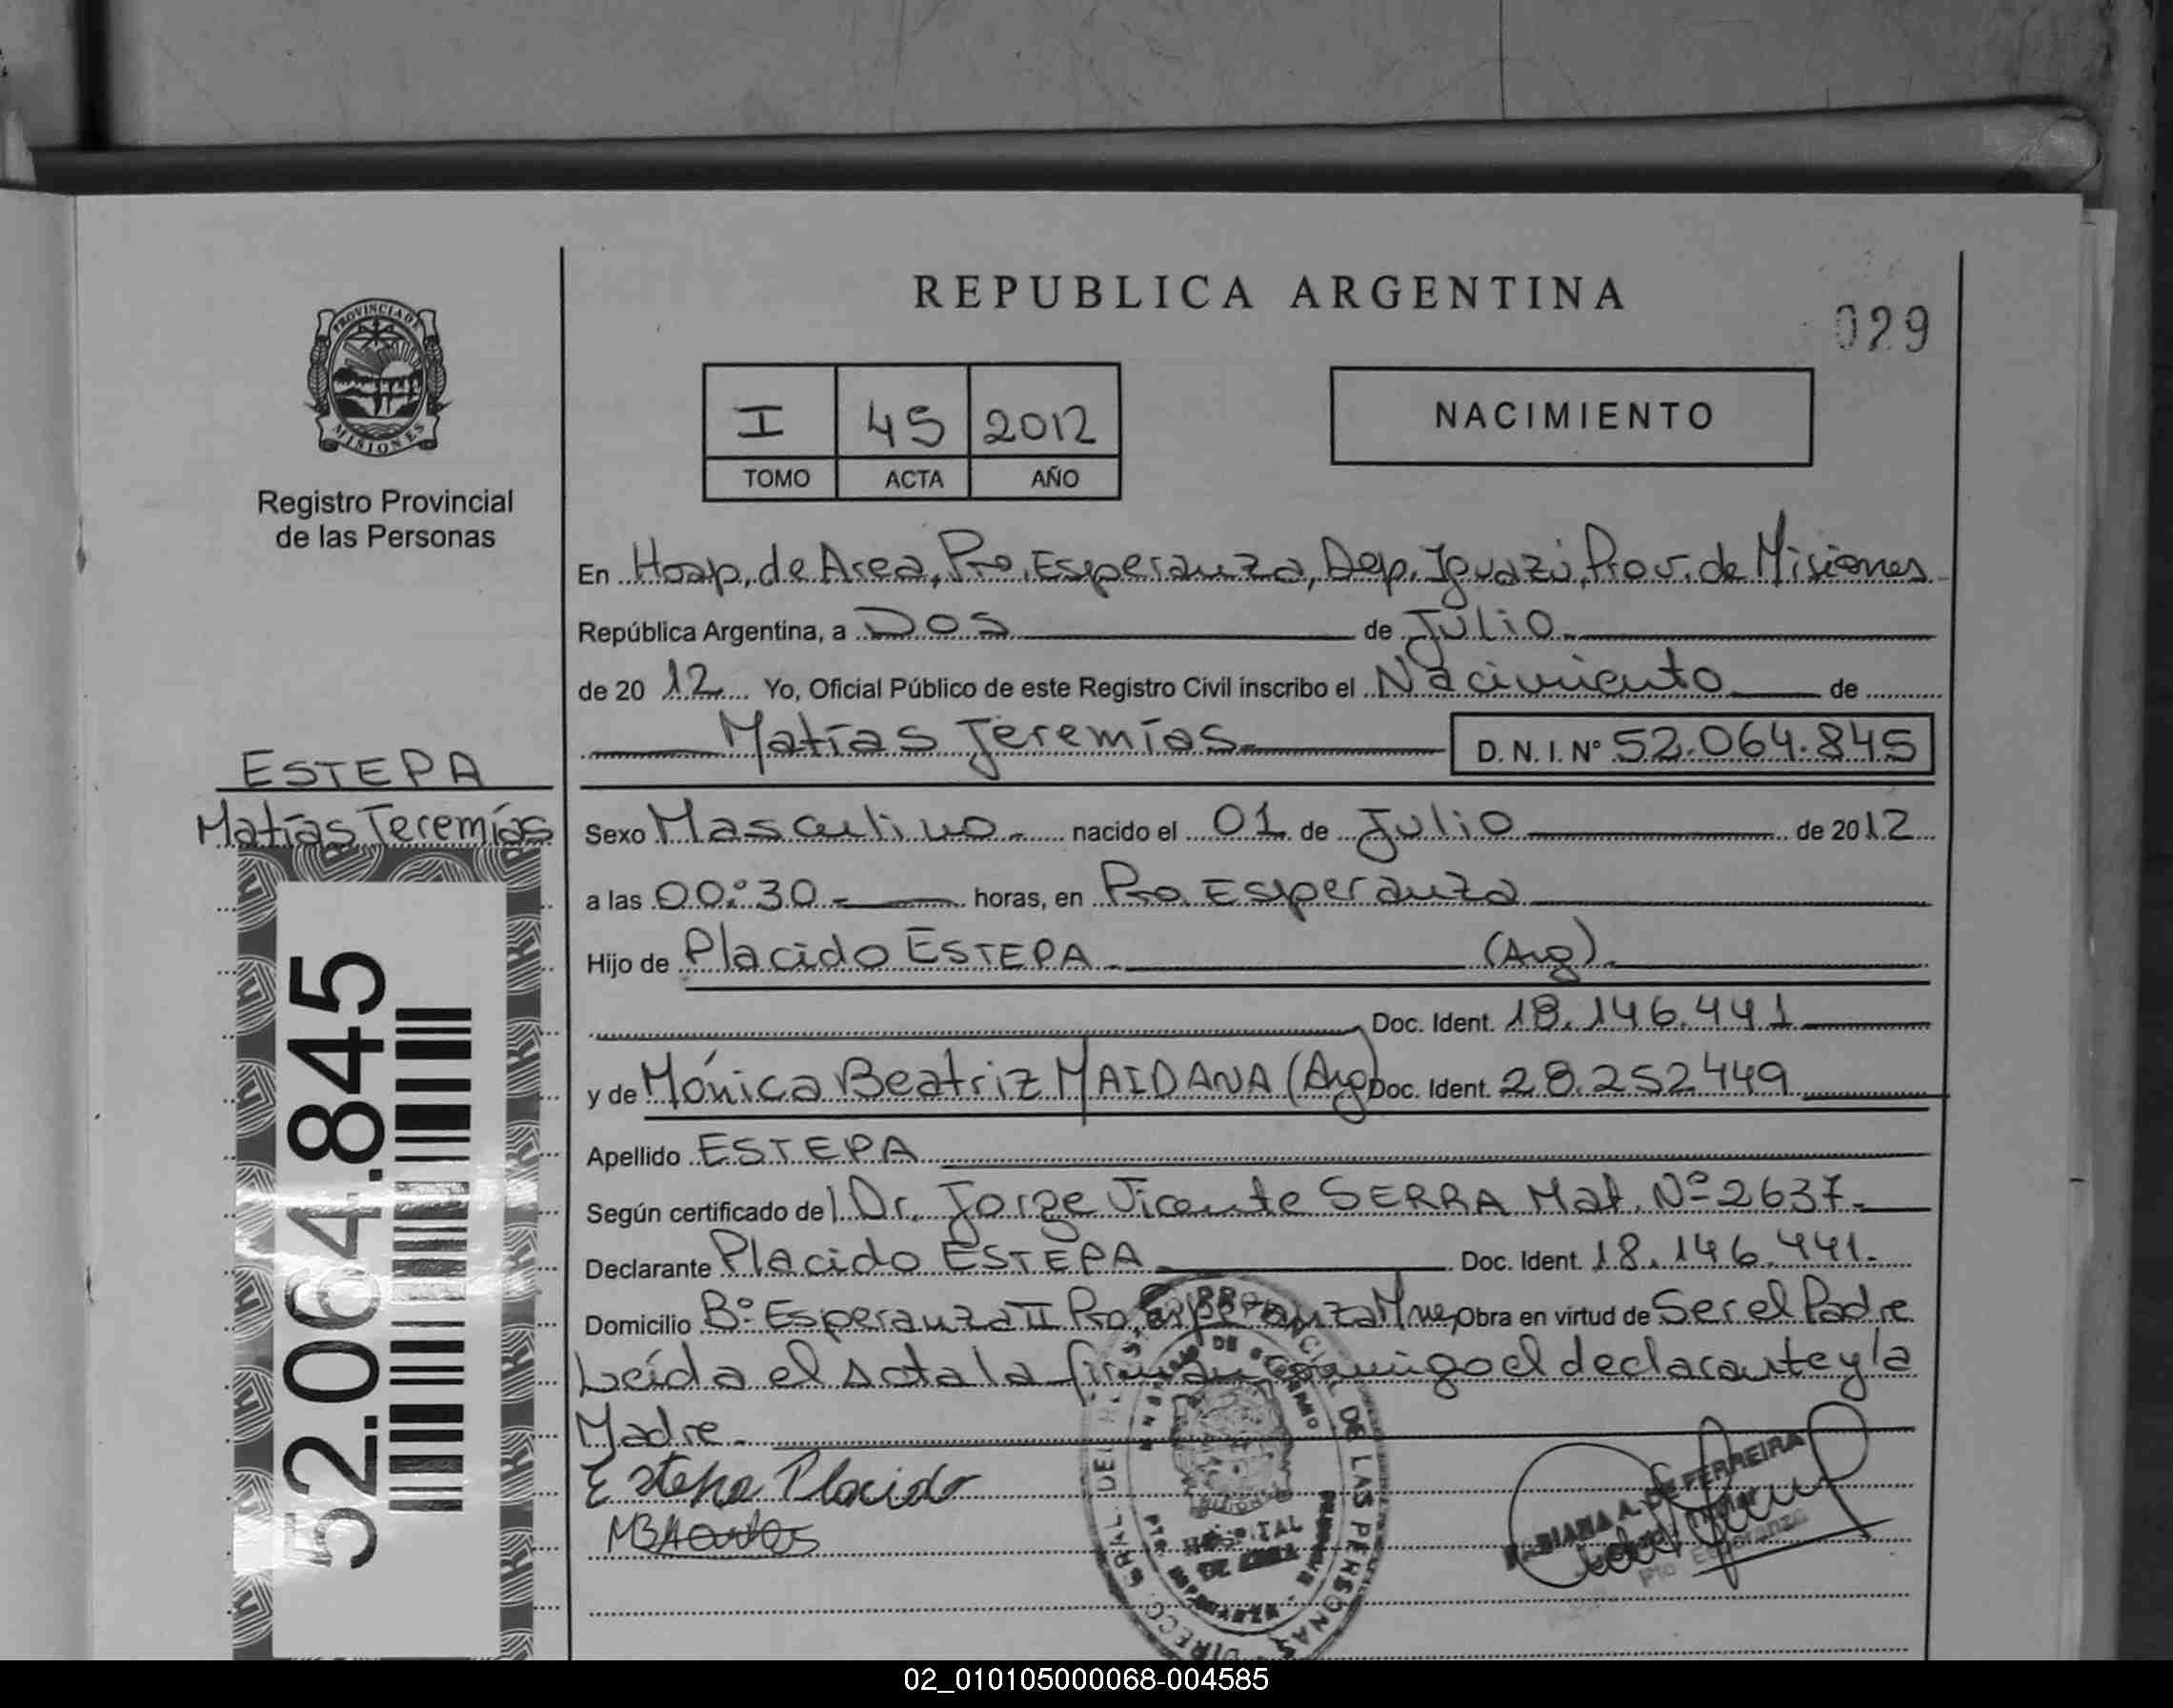 REPUBLICA ARGENTINA
029
PROVINCIA DE
MISIONES
Registro Provincial
de las Personas
I 45 2012
TOMO ACTA AÑO
NACIMIENTO
En Hosp. de Area, Pto. Esperanza, Dep. Iguazú, Prov. de Misiones
República Argentina, a Dos de Julio
de 20 12 Yo, Oficial Público de este Registro Civil inscribo el Nacimiento de
Matías Jeremías D. N. I. Nº 52.064.845
ESTEPA
Matías Jeremías
52.064.845
Sexo Masculino nacido el 01 de Julio de 2012
a las 00:30 horas, en Pto. Esperanza
Hijo de Placido ESTEPA (Arg)
Doc. Ident. 18.146.441
y de Mónica Beatriz MAIDANA (Arg) Doc. Ident. 28.252449
Apellido ESTEPA
Según certificado del Dr. Jorge Vicente SERRA Mat. Nº 2637
Declarante Placido ESTEPA Doc. Ident. 18.146.441.
Domicilio Bº Esperanza II Pto. Esperanza Mnes Obra en virtud de Ser el Padre
Leída el acta la firman conmigo el declarante y la
Madre.
Estepa Placido
DE LAS PERSONAS
HOSPITAL
DE AREA
A. DE FERREIRA
Pto Esperanza
02_010105000068-004585